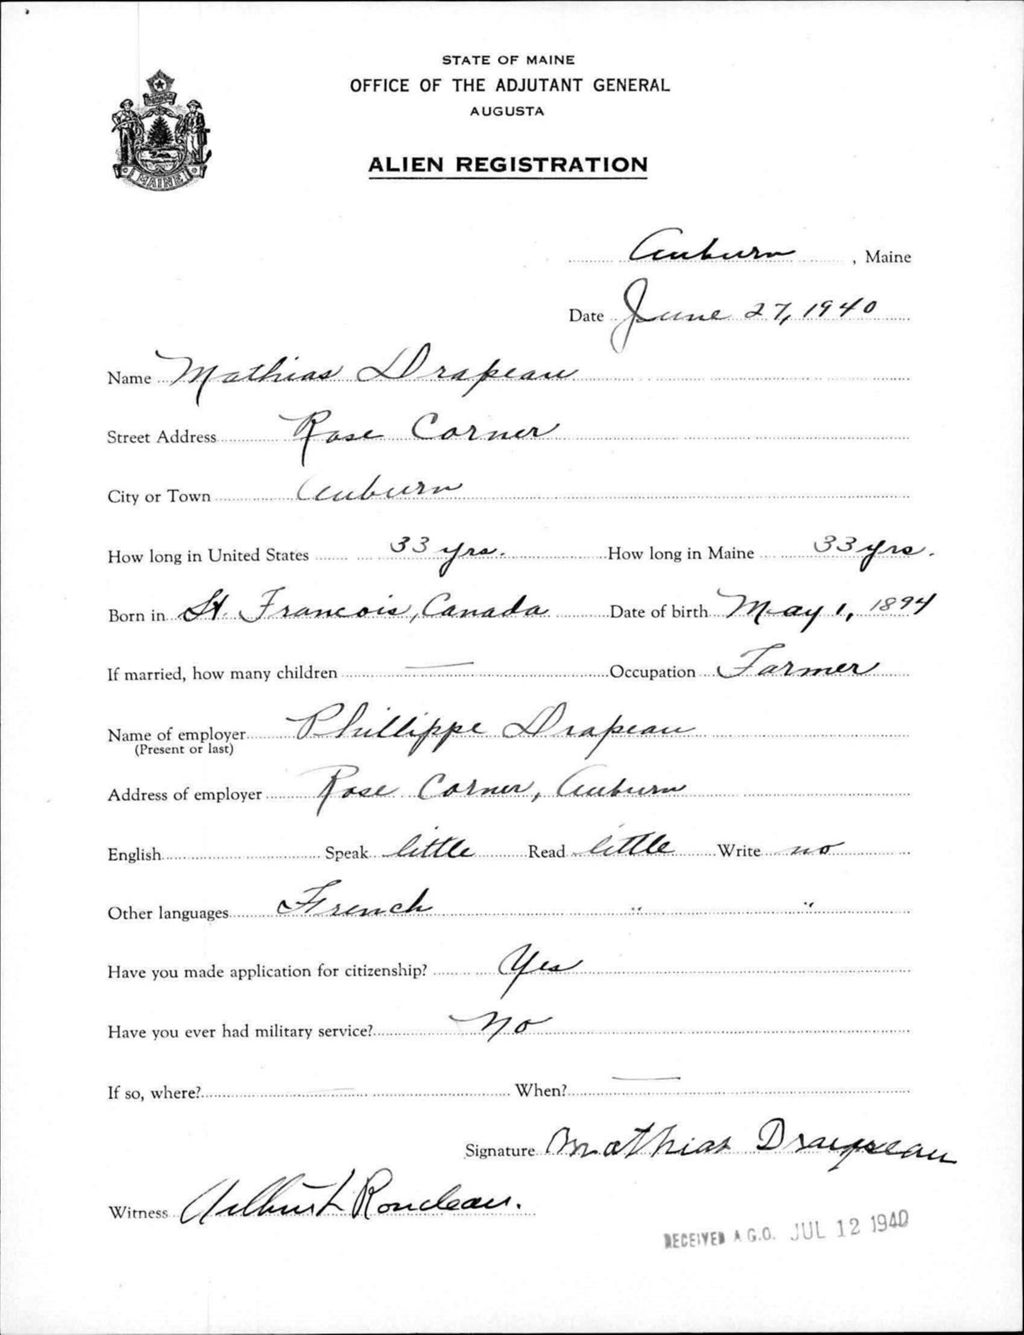 STATE OF MAINE
OFFICE OF THE ADJUTANT GENERAL
AUGUSTA
MAINE
ALIEN REGISTRATION
Auburn, Maine
Date June 27, 1940
Name Mathias Drapeau
Street Address Rose Corner
City or Town Auburn
How long in United States 33 yrs. How long in Maine 33 yrs.
Born in St. Francois, Canada Date of birth May 1, 1894
If married, how many children — Occupation Farmer
Name of employer Phillippe Drapeau
(Present or last)
Address of employer Rose Corner, Auburn
English Speak little Read little Write no
Other languages French " "
Have you made application for citizenship? Yes
Have you ever had military service? No
If so, where? — When? —
Signature Mathias Drapeau
Witness Rondeau.
RECEIVED A.G.O. JUL 12 1940